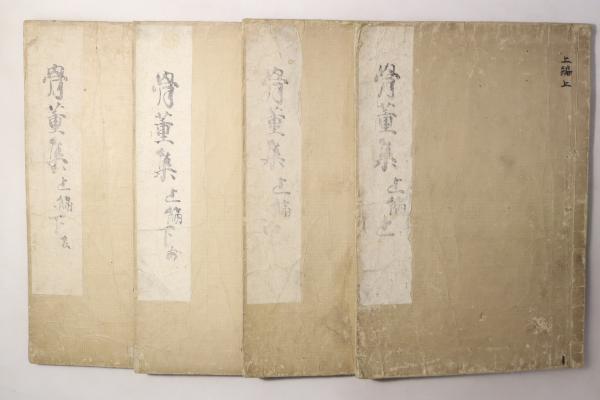 上編上
骨董集 上編上
骨董集 上編中
骨董集 上編下前
骨董集 上編下後